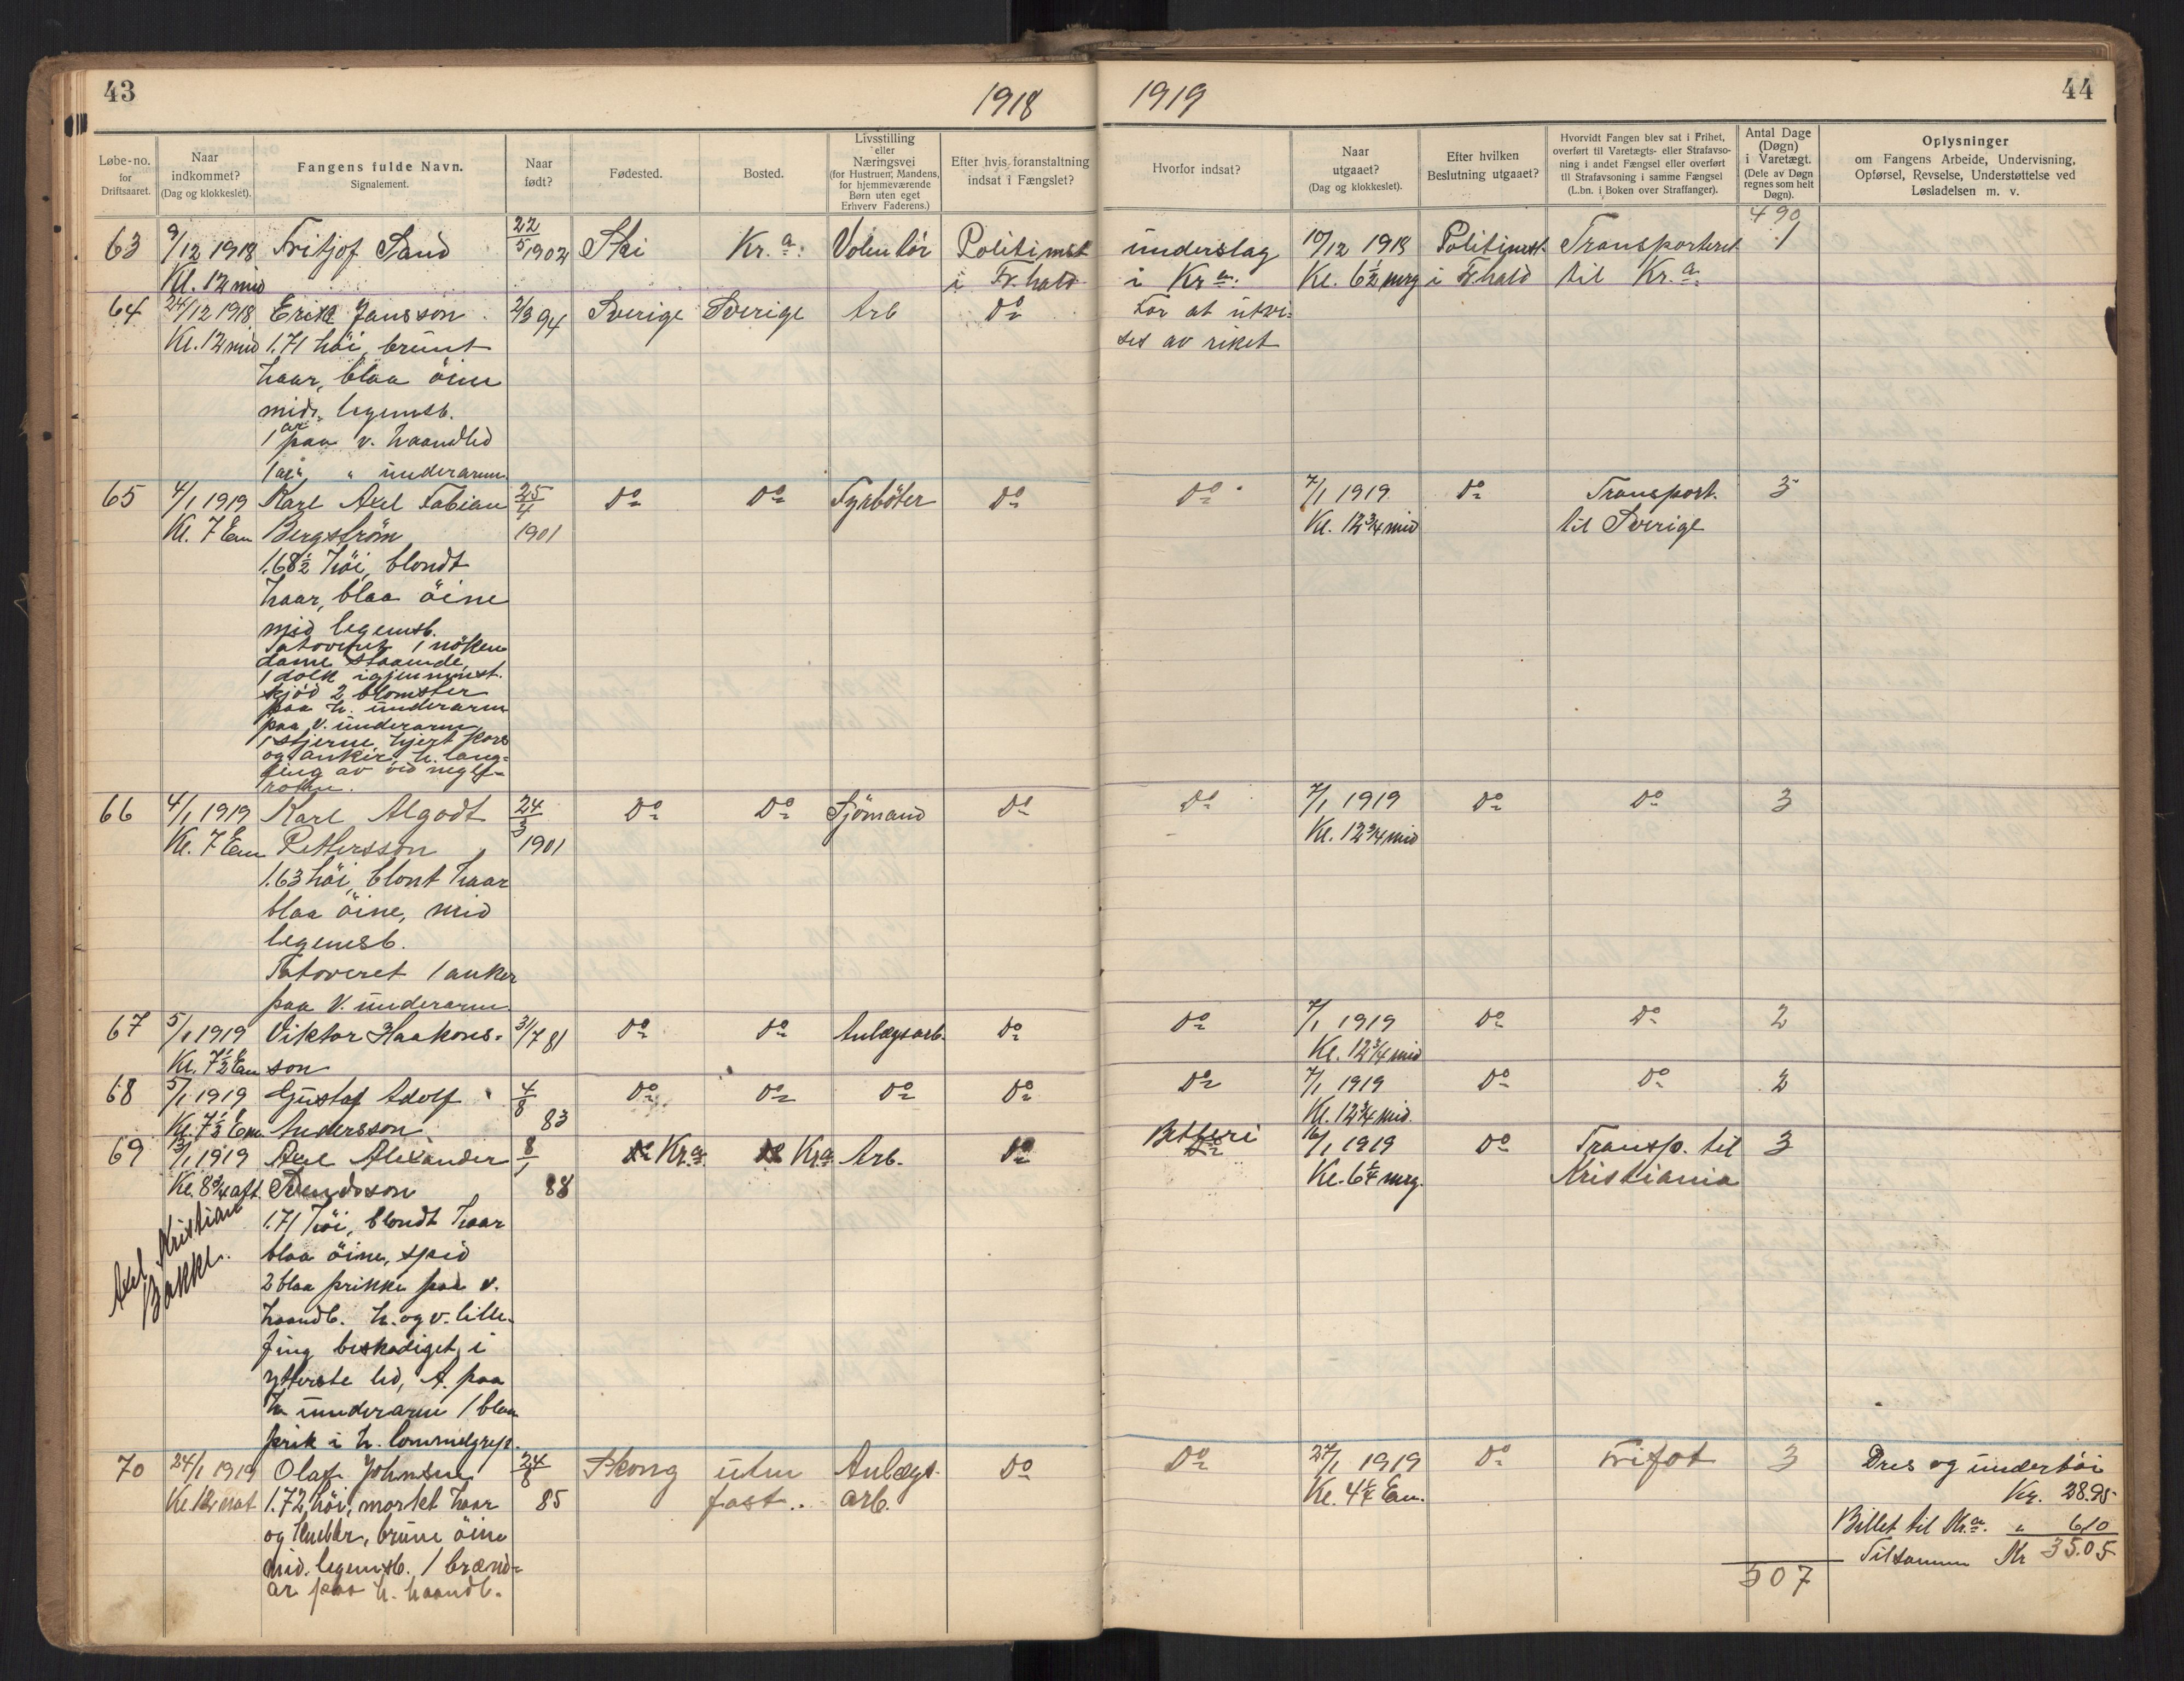 43
1918
1919
44
Løbe-no. for Driftsaaret.
Naar indkommet? (Dag og klokkeslet).
Fangens fulde Navn. Signalement.
Naar født?
Fødested.
Bosted.
Livsstilling eller Næringsvei (for Hustruer, Mandens, for hjemmeværende Børn uten eget Erhverv Faderens.)
Efter hvis foranstaltning indsat i Fængslet?
Hvorfor indsat?
Naar utgaaet? (Dag og klokkeslet).
Efter hvilken Beslutning utgaaet?
Hvorvidt Fangen blev sat i Frihet, overført til Varetægts- eller Strafavsoning i andet Fængsel eller overført til Strafavsoning i samme Fængsel (L.bn. i Boken over Straffanger).
Antal Dage (Døgn) i Varetægt. (Dele av Døgn regnes som helt Døgn).
Oplysninger om Fangens Arbeide, Undervisning, Opførsel, Revselse, Understøttelse ved Løsladelsen m. v.
490
63 9/12 1918 Fritjof Sand 22/5 1902 Ski Kr.a: Volentör Politimst underslag 10/12 1918 Politimst. Transporteret 1
Kl. 12 mid i Fr.hald i Kra: Kl. 6½ mrg i F.hald til Kr.a.
64 24/12 1918 Erik Jansson 2/3 94 Sverige Sverige Arb do For at utvi=
Kl. 12 mid 1.71 höi, brunt ses av riket
haar, blaa öine
mid. legemsb.
1 ar paa v. haandled
1 ar " " underarm
65 4/1 1919 Karl Axel Fabian 25/4 do do Fyrböter do do 7/1 1919 do Transport. 3
Kl. 7 Em Bergström 1901 Kl. 12¾ mid til Sverige
1.68½ höi, blondt
haar, blaa öine
mid legemsb.
Tatoveret 1 nöken
dame staaende,
1 dolk igjennemst.
skjöd 2 blomster
paa h. underarm
paa v. underarm
1 stjerne, hjert kors
og anker, h. lang=
fing av ved negle=
roten.
66 4/1 1919 Karl Algodt 24/3 do do Sjömand do do 7/1 1919 do do 3
Kl. 7 Em Pettersson 1901 Kl. 12¾ mid
1.63 höi, blont haar
blaa öine, mid
legemsb.
Tatoveret 1 anker
paa V. underarm
67 5/1 1919 Viktor Haakons= 31/7 81 do do Anlægsarb. do do 7/1 1919 do do 2
Kl. 7½ Em son Kl. 12¾ mid
68 5/1 1919 Gustaf Adolf 4/8 do do do do do 7/1 1919 do do 2
Kl. 7½ Em. Andersson 83 Kl. 12¾ mid.
69 13/1 1919 Axel Alexander 8/1 Kr.a. Kr.a Arb. do Betleri 16/1 1919 do Transp. til 3
Kl. 8¾ aft. 88 Kl. 6¼ mrg. Kristiania
Axel Kristian
Bakke.
1.71 höi, blondt haar
blaa öine, spid
2 blaa prikke paa v.
haandb. h. og v. lille=
fing beskadiget i
ytterste led, A. paa
h. underarm 1 blaa
prik i h. tommelgrep.
70 24/1 1919 Olaf Johnsen 24/8 Skong uten Anlægs= do do 27/1 1919 do Frifot 3 Dres og undertöi
Kl. 12 nat 1.72 höi, morket haar 85 fast.. arb. Kl. 4¼ Em. Kr. 28.95
og knebelb., brune öine Billet til Kr.a. " 6.10
mid. legemsb. 1 brænd= Tilsammen Kr 35.05
ar paa h. haandb.
507